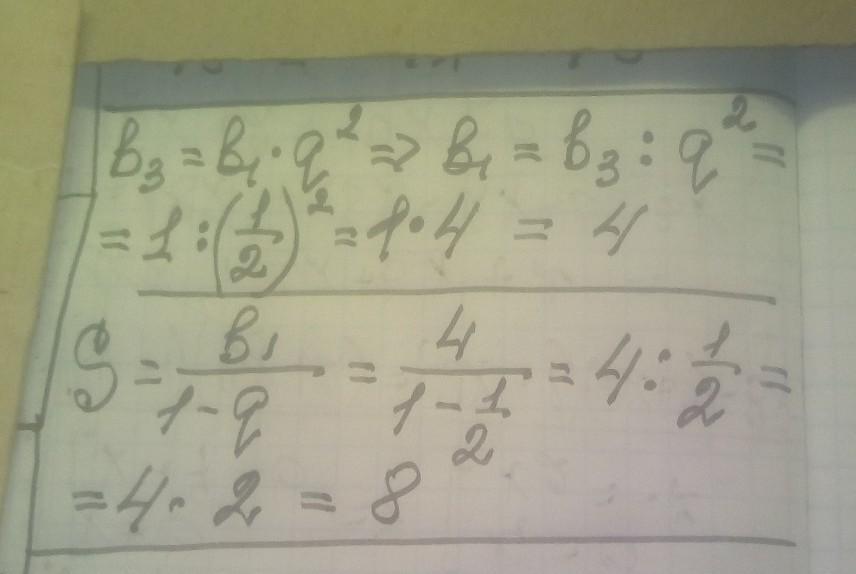 b₃ = b₁ · q² => b₁ = b₃ : q² =
= 1 : (1/2)² = 1 · 4 = 4
S = b₁/(1 - q) = 4/(1 - 1/2) = 4 : 1/2 =
= 4 · 2 = 8